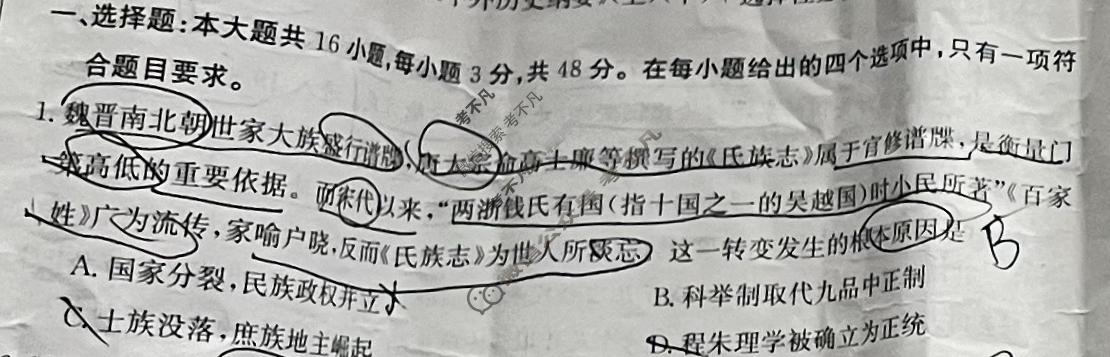 一、选择题:本大题共16小题,每小题3分,共48分。在每小题给出的四个选项中,只有一项符
合题目要求。
1. 魏晋南北朝世家大族盛行谱牒,唐太宗命高士廉等撰写的《氏族志》属于官修谱牒,是衡量门
第高低的重要依据。而宋代以来,“两浙钱氏有国(指十国之一的吴越国)时小民所著”《百家
姓》广为流传,家喻户晓,反而《氏族志》为世人所淡忘。这一转变发生的根本原因是
B
A. 国家分裂,民族政权并立
B. 科举制取代九品中正制
C. 士族没落,庶族地主崛起
D. 程朱理学被确立为正统